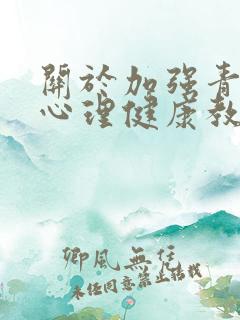 關於加强青
心理健康教
卿風無住
未经同意禁止结载